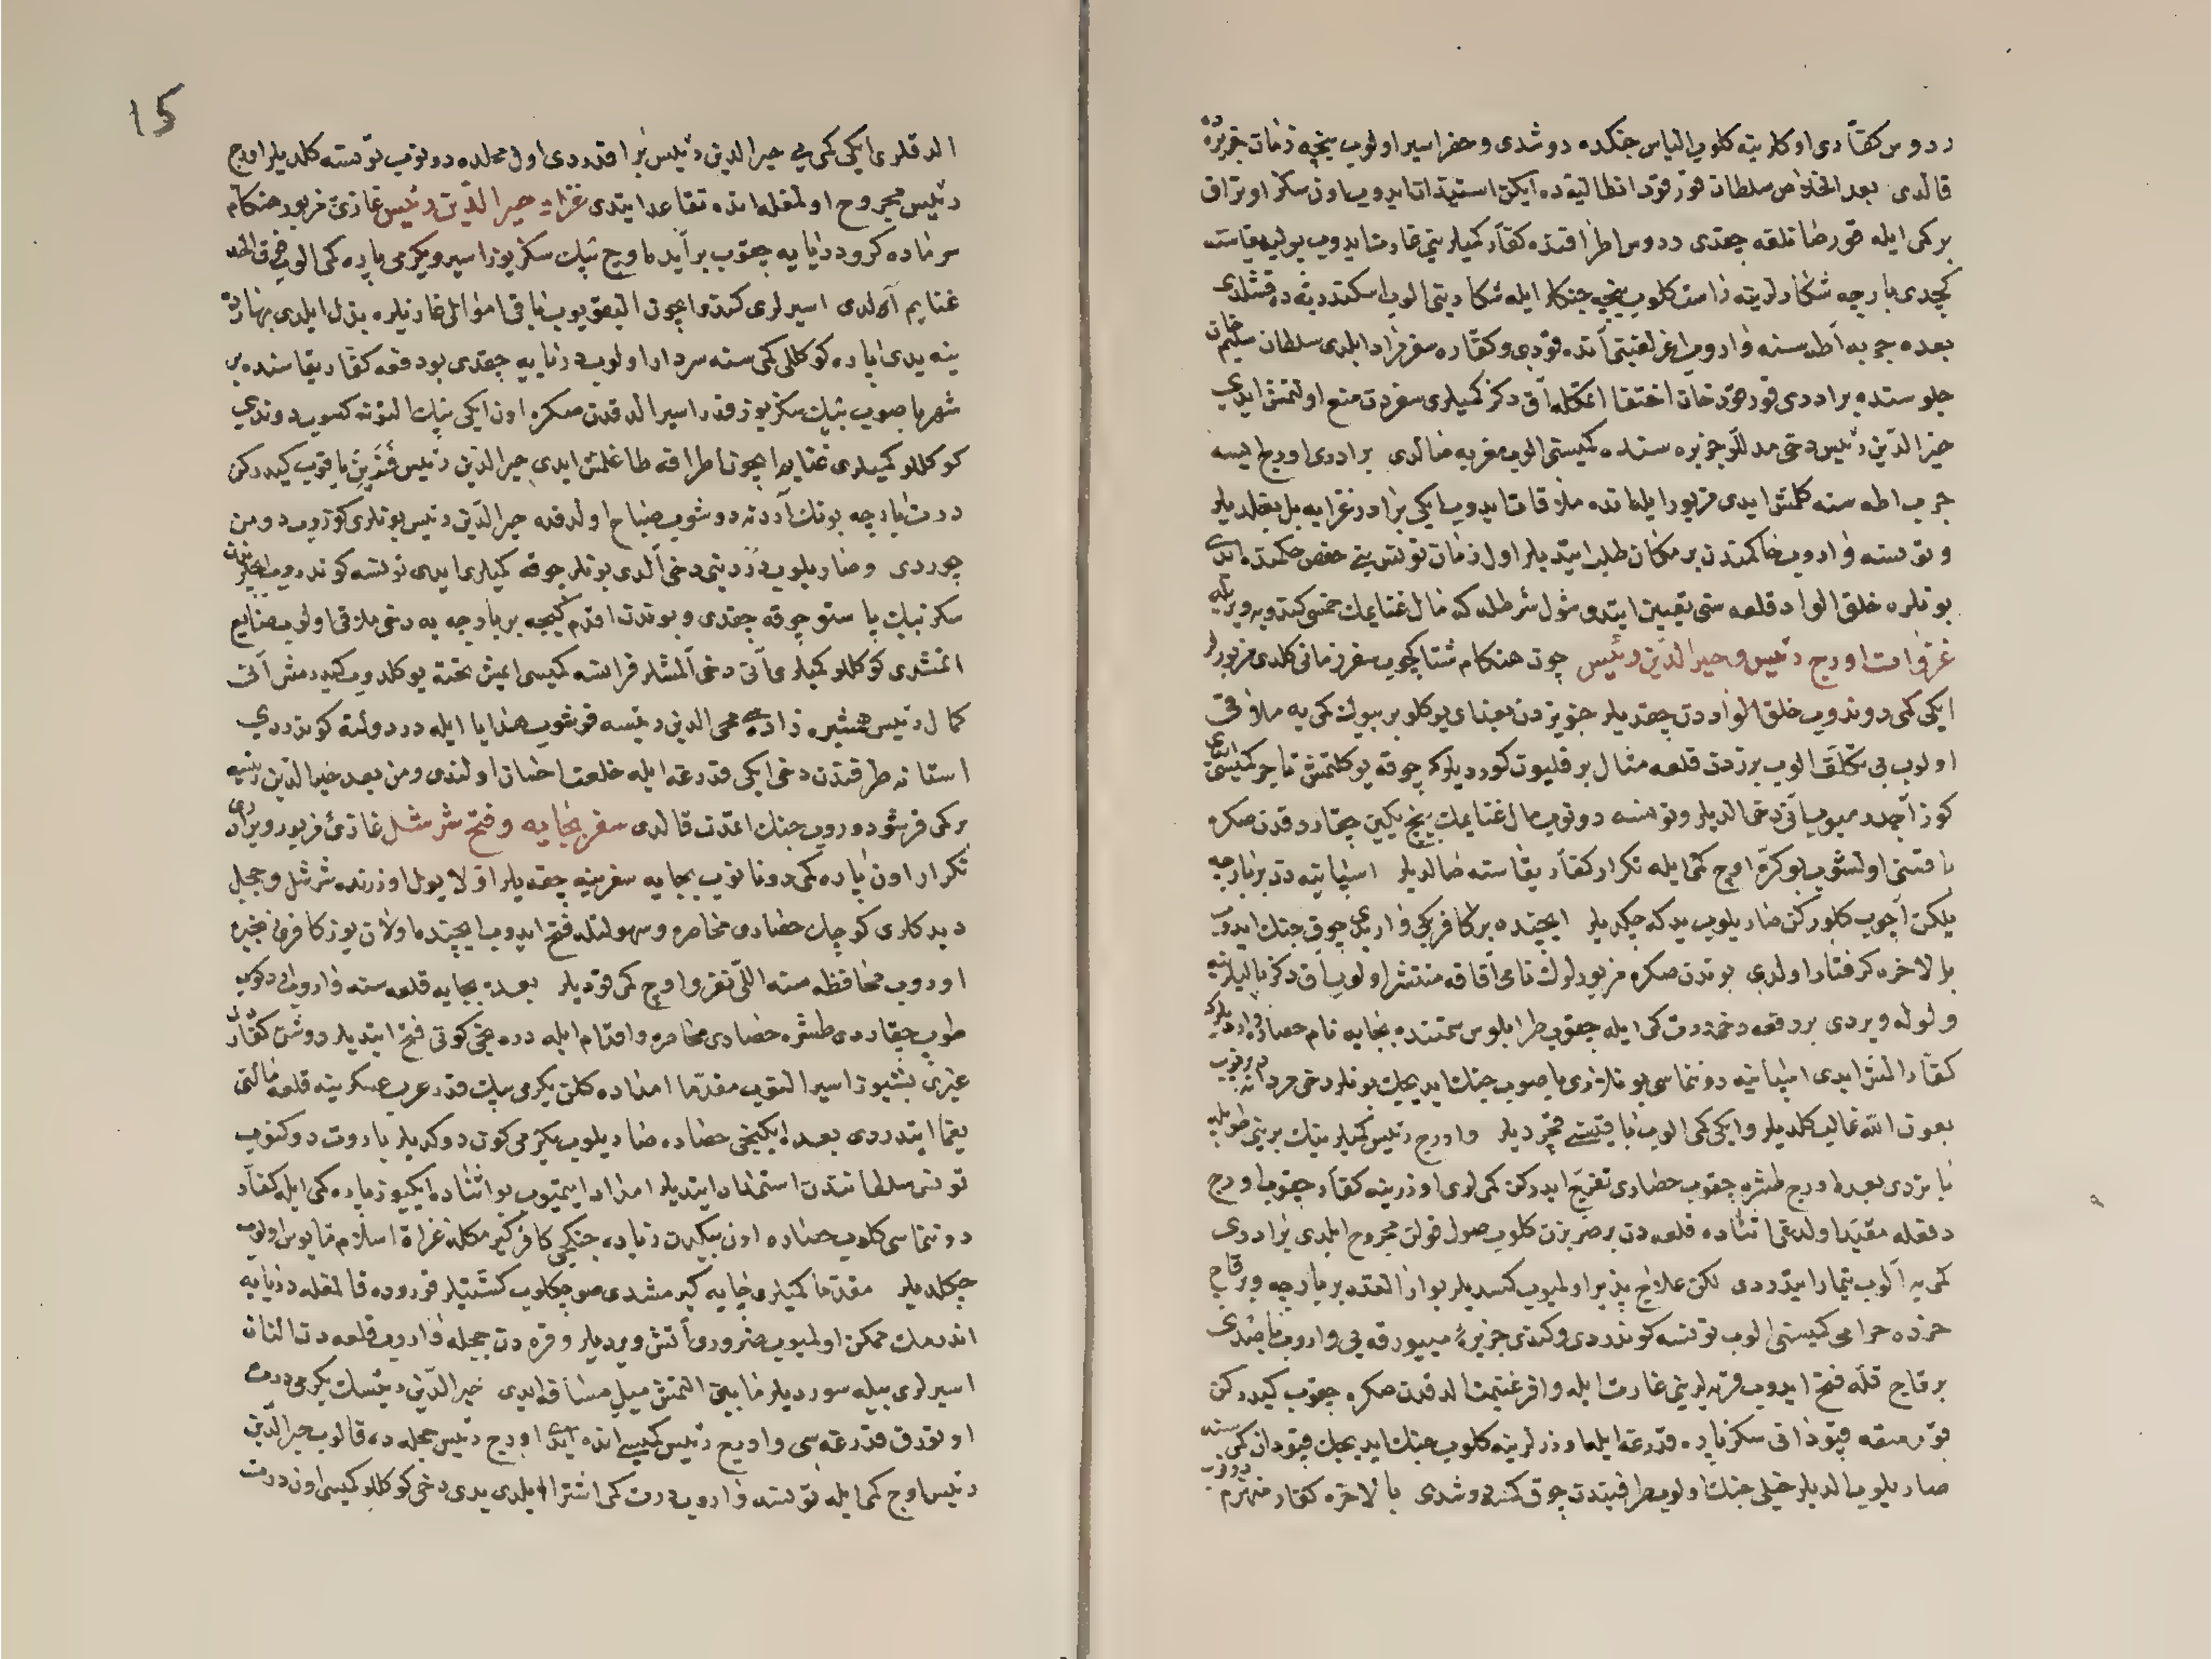 ردوس كفّاری اوكلرینه كلوب الیاس جنكده دوشدی و خضر اسیر اولوب نیجه زمان جزیره ده
قالدی بعد الخلاص سلطان قورقود انطالیه ده ایكن استیذان ایدوب اون سكز اوتراق
بر كمی ایله قورصانلغه چقدی ردوس اطرافنده كفّار كمیلرینی غارت ایدوب پولیه یقاسنه
كچدی بارچه شكارلرینه راست كلوب نیجه جنكلر ایله شكارینی الوب اسكندریه ده قشلدی
بعده جربه اطه سنه واروب اغرلغینی آنده قودی و كفّاره سفر ایلدی سلطان سلیم خان
جلوسنده برادری قورقود خان اختفا ایتمكله آق دكز كمیلری سفردن منع اولنمش ایدی
خیر الدین رئیس دخی مدللو جزیره سنده كمیسنی الوب مغربه صالدی برادری اورج ایسه
جربه اطه سنه كلمش ایدی مزبور ایله انده ملاقات ایدوب ایكی برادر غزایه بل بغلدیلر
و تونسه واروب حاكمندن بر مكان طلب ایتدیلر اول زمان تونس بنی حفص حكمنده ایدی
بونلره خلق الواد قلعه سنی تعیین ایتدی شول شرطله كه مال غنایمك خمسی كندویه ویریله
غزوات اورج رئیس و خیر الدین رئیس چون هنكام شتا كچوب سفر زمانی كلدی مزبورلر
ایكی كمی دوندوب خلق الواددن چقدیلر جنویزدن بغدای یوكلو بر بیوك كمی یه ملاقی
اولوب بی تكلّف الوب برزدن قلعه مثال بر قلیون كوردیلر كه چوقه یوكلنمش تاجر كمیسی ایدی
كوز آچدرمیوب آنی دخی الدیلر و تونسه دونوب مال غنایمك پنج یكین چقاردقدن صكره
باقیسی اولشوب بو كرّه اوچ كمی ایله تكرار كفّار یقاسنه صالدیلر اسپانیه دن بر بارچه
یلكن آچوب كلوركن صاریلوب یدكه چكدیلر ایچنده بر كافر بكی وار ایدی چوق جنك ایدوب
بالاخره كرفتار اولدی بوندن صكره مزبورلرك نامی آفاقه منتشر اولوب آق دكز یالیلرینه
ولوله ویردی بر دفعه دخی درت كمی ایله چقوب طرابلوس سمتنده بجایه نام حصاره واردیلر كه
كفّار المش ایدی اسپانیه دونماسی بونلری باصوب جنك ایدیجك بونلر دخی مردانه دونوب
بعون اللّه غالب كلدیلر و ایكی كمی الوب باقیسنی قچردیلر و اورج رئیس كمیلرینك برینی طوبله
باتردی بعده اورج طشره چقوب حصاری تفرّج ایدركن كمیلری اوزرینه كفّار چقوب اورج
دفعله مقیّد اولدغی اثناده قلعه دن بر ضربزن كلوب صول قولن مجروح ایلدی برادری
كمی یه آلوب تیمار ایتدردی لكن علاج پذیر اولمیوب كسدیلر بو ارالقده بر بارچه و بر قاچ
خرده حرامی كمیسنی الوب تونسه كوندردی و كندی جزیره مییورقه یی واروب باصدی
بر قاچ قله فتح ایدوب قریه لرینی غارت ایله وافر غنیمت الدقدن صكره چقوب كیدركن
قورسقه قپودانی سكز پاره قدرغه ایله اوزرلرینه كلوب جنك ایدیجك قپودان كمی سنه
صاریلوب الدیلر خیلی جنك اولوب طرفیندن چوق كمسه دوشدی بالاخره كفّار منهزم دونوب
15
الدقلری ایكی كمی یی خیر الدین رئیس براقدردی اول محلده دونوب تونسه كلدیلر اورج
رئیس مجروح اولمغله انده تقاعد ایتدی غزاء خیر الدین رئیس غازئ مزبور هنكام
سرماده كرو دریایه چقوب بر آیده اوچ بیك سكز یوز اسیر و یكرمی پاره كمی الوب غرق الحد
غنایم آلدی اسیرلری كندو ایچون الیقویوب باقی اموالی غازیلره بذل ایلدی بهاران
ینه یدی پاره كوكللی كمی سنه سردار اولوب دریایه چقدی بو دفعه كفّار یقاسنده بر
شهر باصوب بیك سكز یوز قدر اسیر الدقدن صكره اون ایكی بیك التونه كسوب دوندی
كوكللو كمیلری غنایم ایچون اطرافه طاغلمش ایدی خیر الدین رئیس فنرین یاقوب كیدركن
درت بارچه بونك آردنه دوشوب صباح اولدقده خیر الدین رئیس بونلری كوروب دومن
چوردی و صاریلوب دردینی دخی الدی بونلر چوقه كمیلری ایدی تونسه كوندروب ایچلرندن
سكز بیك پاستو چوقه چقدی و بوندن اقدم كیجه بر بارچه یه دخی ملاقی اولوب ضایع
ایتمشدی كوكللو كمیلری آنی دخی آلمشلر فرانسه كمیسی ایمش تخته یوكلدوب كیدرمش آنی
كمال رئیس همشیره زاده سی محی الدین رئیسه قوشوب هدایا ایله در دولته كوندردی
استانه طرفندن دخی ایكی قدرغه ایله خلعت احسان اولندی و من بعد خیر الدین رئیسه
بر كمی قرشو دوروب جنك ایتمدن قالدی سفر بجایه و فتح شرشل غازئ مزبور و برادری
تكرار اون پاره كمی دوناتوب بجایه سفرینه چقدیلر اوّلا یول اوزرنده شرشل و جیجل
دیدكلری كوچك حصاری محاصره و سهولتله فتح ایدوب ایچنده اولان یوز كافری زنجیره
اوروب محافظه سنه اللی نفر و اوچ كمی قودیلر بعده بجایه قلعه سنه واروب دوكوب
طوب چقاردی طشره حصاری محاصره و اقدام ایله دردنجی كونی فتح ایتدیلر دوشن كفّاردن
غیری بشیوز اسیر الیقوب مقدّما امداده كلن یكرمی بیك قدر عرب عسكرینه قلعه مالنی
یغما ایتدردی بعده ایكینجی حصاره صاریلوب یكرمی كون دوكدیلر باروت دوكنوب
تونس سلطانندن استمداد ایتدیلر امداد ایتمیوب بو اثناده ایكیوز پاره كمی ایله كفّار
دونماسی كلوب حصاره اون بیكدن زیاده جنكجی كافر كیرمكله غزاة اسلام مایوس اولوب
چكلدیلر مقدّما كمیلری چایه كیرمشدی صو چكلوب كشتیلر قوروده قالمغله دریایه
اندرمك ممكن اولمیوب ضروری آتش ویردیلر و قره دن جیجله واروب قلعه دن النان
اسیرلری بیله سوردیلر مابینی التمش میل مسافه ایدی خیر الدین رئیسك یكرمی درت
اوتورق قدرغه سی و اورج رئیس كمیسی انده ایدی اورج رئیس جیجلده قالوب خیر الدین
رئیس اوچ كمی ایله تونسه واروب درت كمی اشترا ایلدی یدی دخی كوكللو كمیسی اون درت